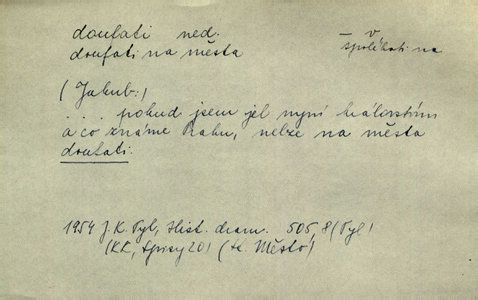 doufati ned.
doufati na města
– v
spoléhati na
(Jakub:)
. . . pokud jsem jel nyní královstvím
a co známe Prahu, nelze na města
doufati.
1954 J. K. Tyl, Hist. dram. 505, 8 (Tyl)
(KK, Spisy 20) (K. Město)